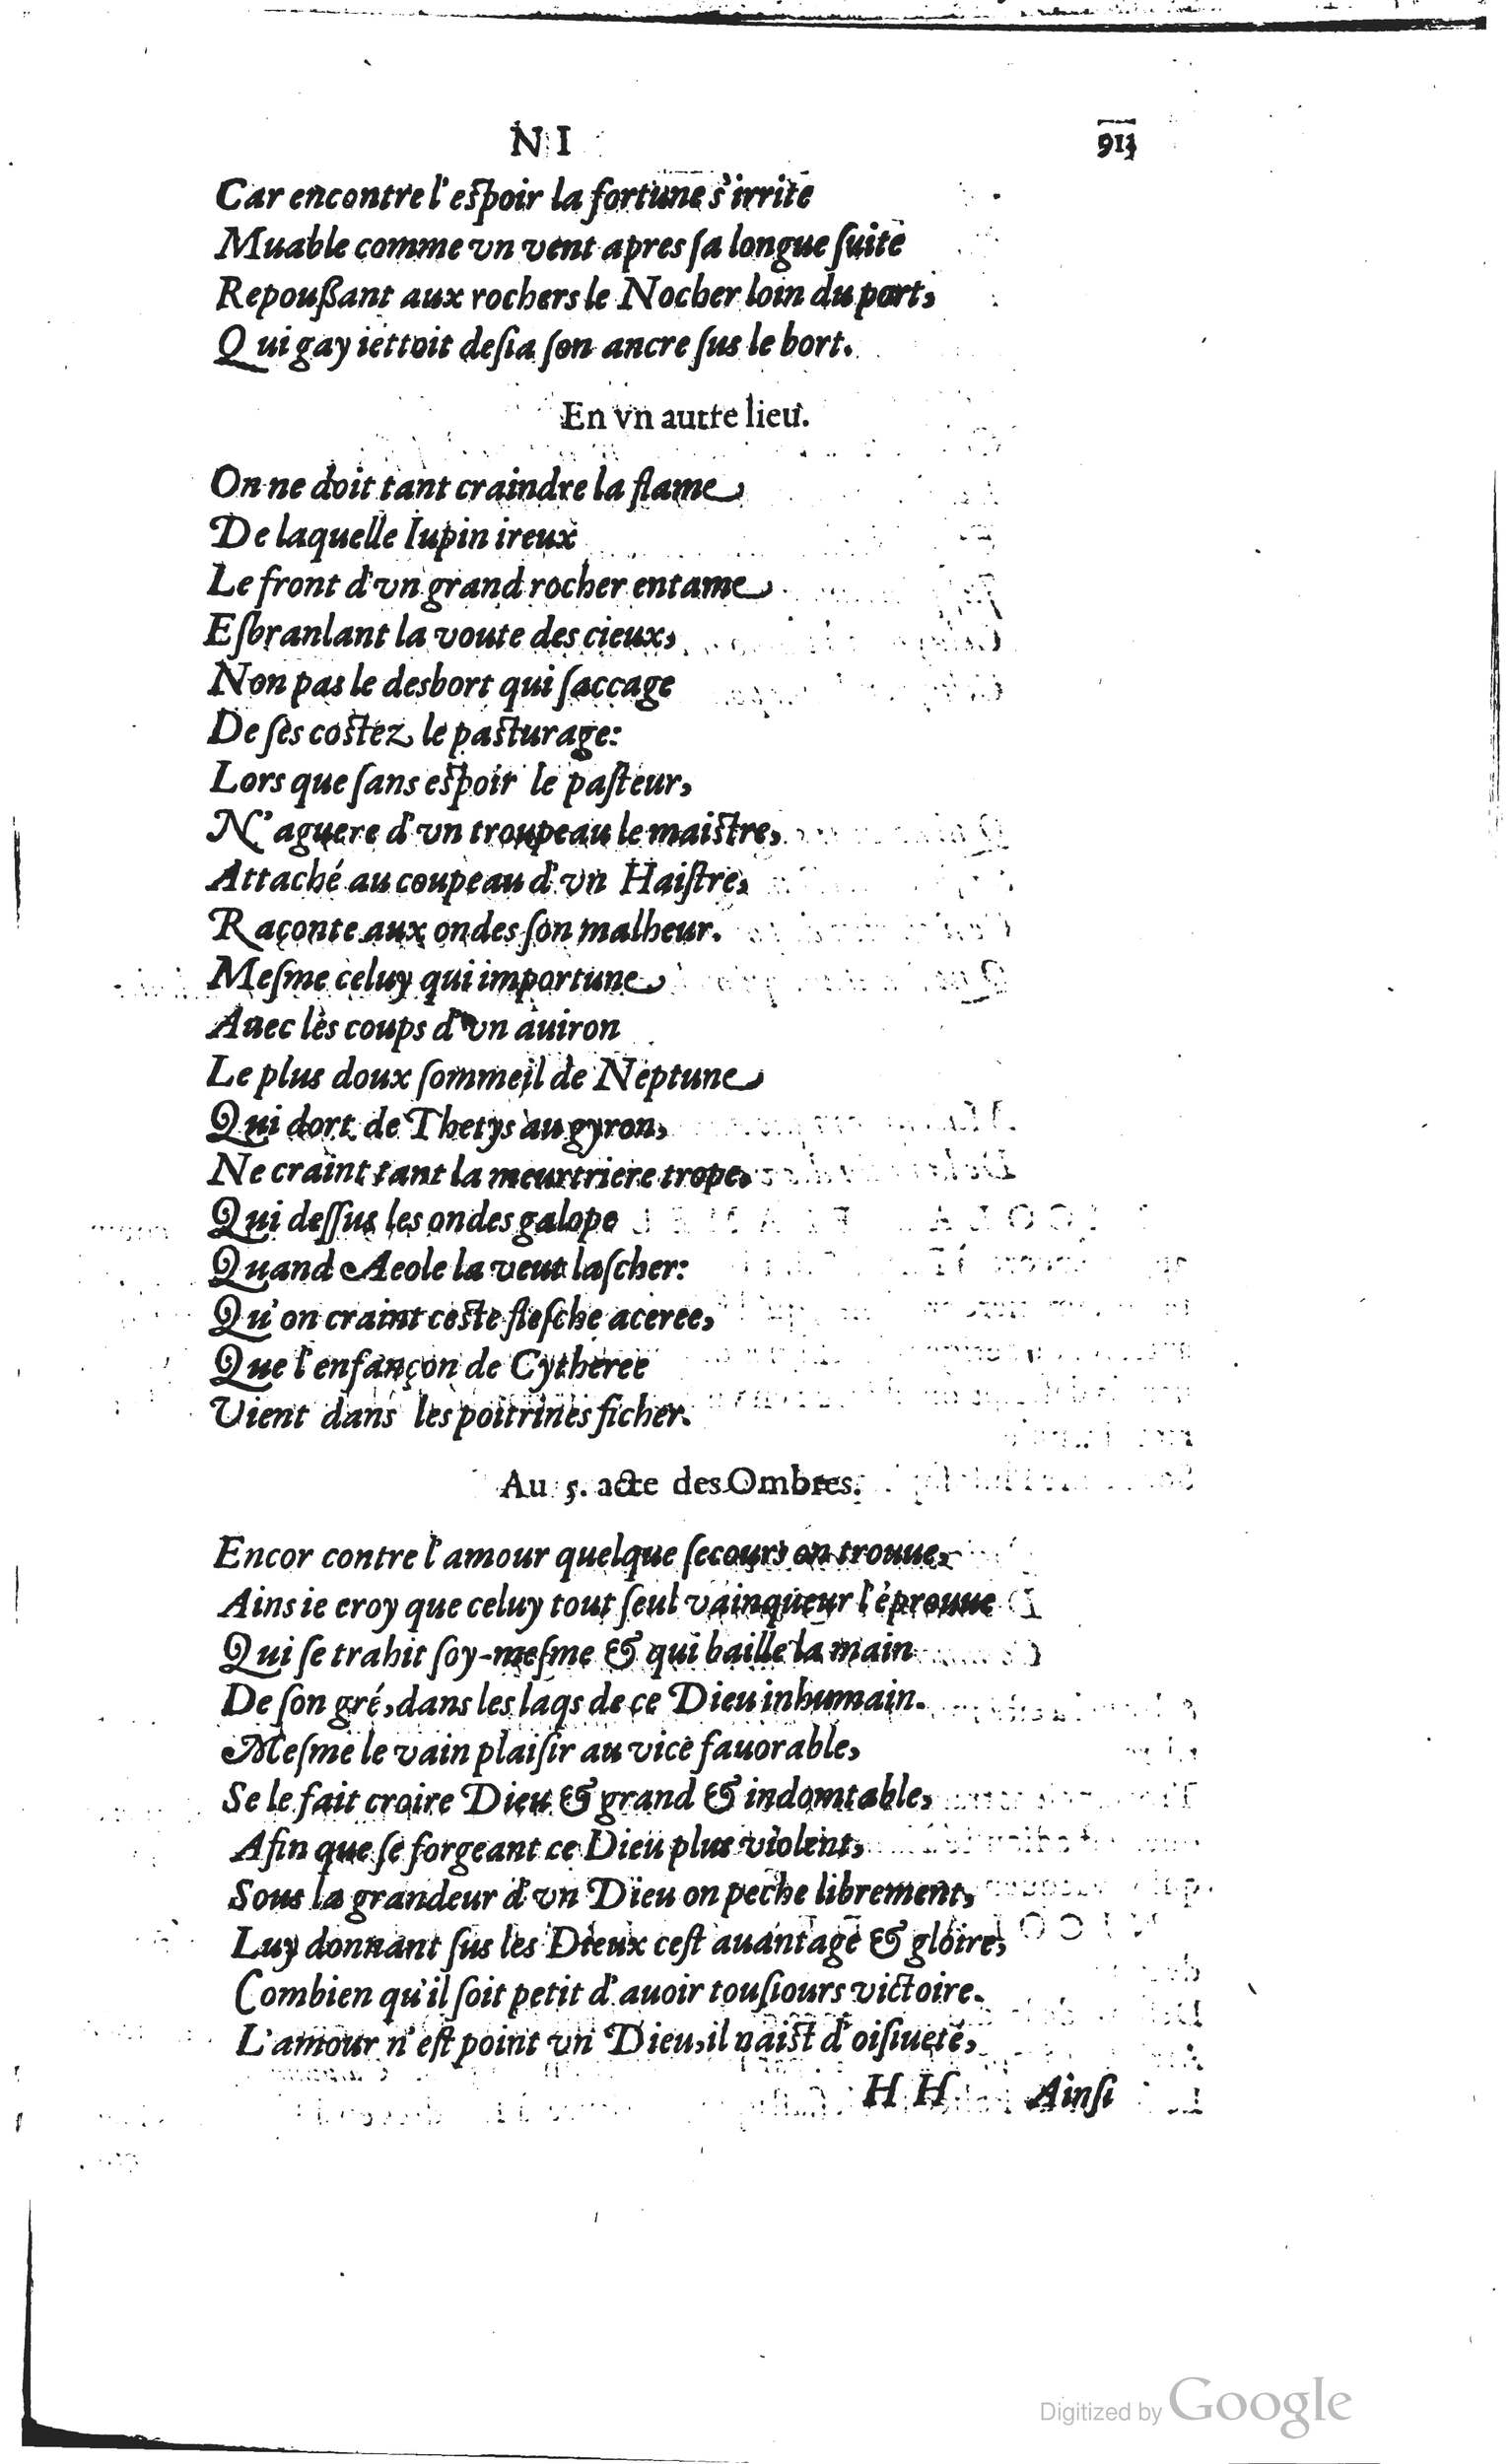 N I 913
Car encontre l'espoir la fortune s'irrite
Muable comme vn vent apres ſa longue ſuite
Repouſsant aux rochers le Nocher loin du port,
Qui gay iettoit deſia ſon ancre ſus le bort.
En vn autre lieu.
On ne doit tant craindre la flame
De laquelle Iupin ireux
Le front d'vn grand rocher entame
Eſbranlant la voute des cieux,
Non pas le desbort qui ſaccage
De ſes costez le pasturage:
Lors que ſans espoir le paſteur,
N'aguere d'vn troupeau le maistre,
Attaché au coupeau d'vn Haiſtre,
Raconte aux ondes ſon malheur.
Meſme celuy qui importune
Auec les coups d'vn auiron
Le plus doux ſommeil de Neptune
Qui dort de Thetys au gyron,
Ne craint tant la meurtriere trope,
Qui deſſus les ondes galope
Quand Aeole la veut laſcher:
Qu'on craint ceste fleſche aceree,
Que l'enfançon de Cytheree
Vient dans les poitrines ficher.
Au 5. acte des Ombres.
Encor contre l'amour quelque ſecours on trouue,
Ains ie croy que celuy tout ſeul vainqueur l'éprouue
Qui ſe trahit ſoy-meſme & qui baille la main
De ſon gré, dans les laqs de ce Dieu inhumain.
Meſme le vain plaiſir au vice fauorable,
Se le fait croire Dieu & grand & indomtable,
Afin que ſe forgeant ce Dieu plus violent,
Sous la grandeur d'vn Dieu on peche librement,
Luy donnant ſus les Dieux ceſt auantage & gloire,
Combien qu'il ſoit petit d'auoir touſiours victoire.
L'amour n'eſt point vn Dieu, il naist d'oiſiueté,
H H Ainſi
Digitized by Google